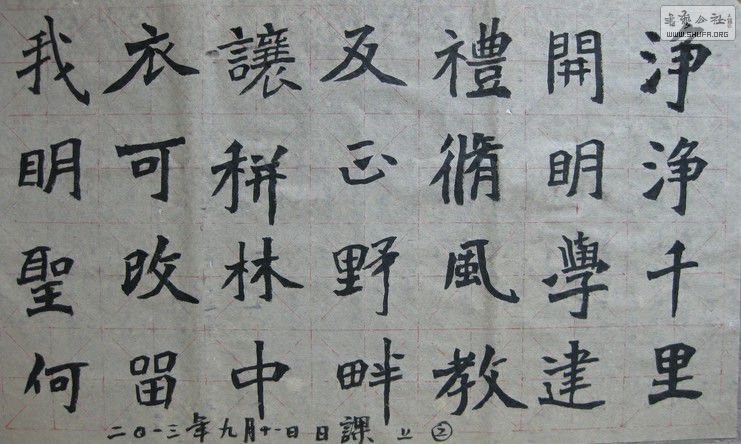 浄浄千里
開明學建
禮脩風教
反正野畔
讓耕林中
衣可改留
我明聖何
二〇一三年九月十一日日課 ②
書藝公社
WWW.SHUFA.ORG